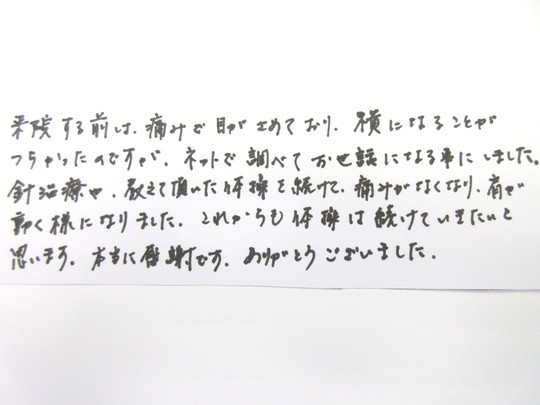 来院する前は、痛みで目がさめており、横になることが
つらかったのですが、ネットで調べてお世話になる事にしました。
針治療や、教えて頂いた体操を続けて、痛みがなくなり、肩が
動く様になりました。これからも体操は続けていきたいと
思います。本当に感謝です。ありがとうございました。